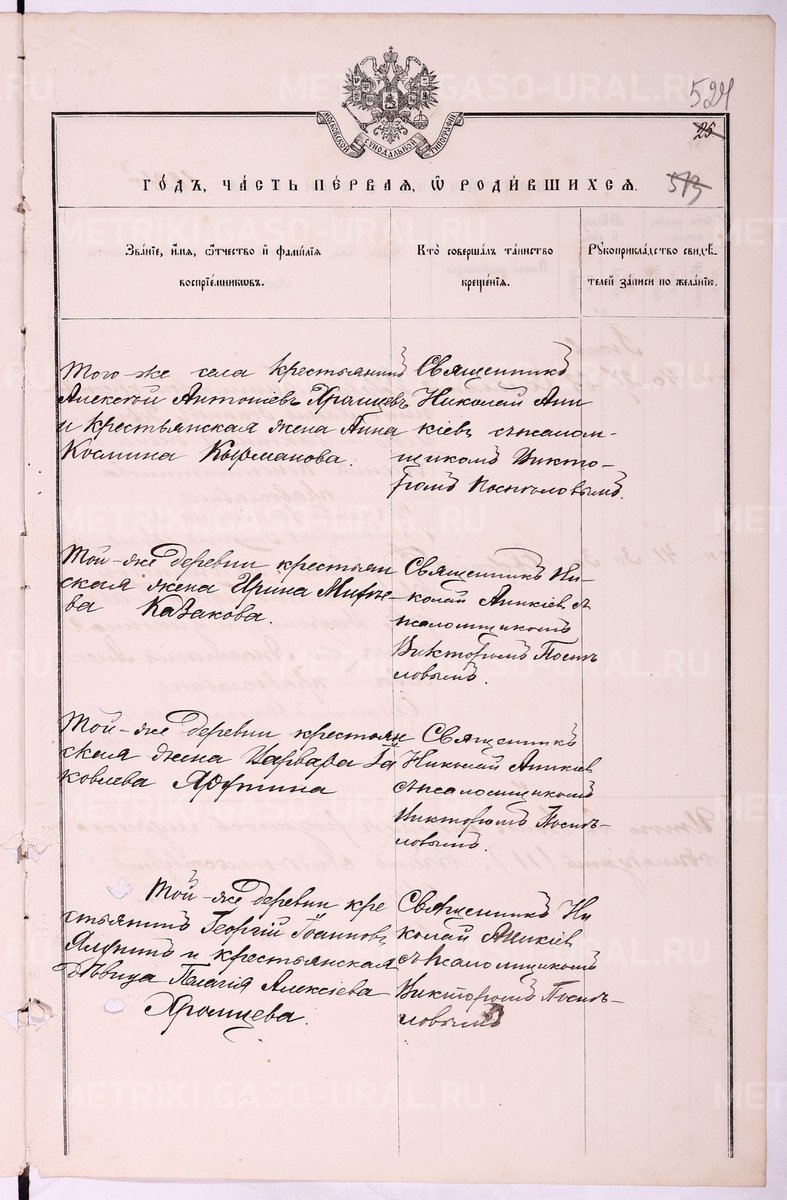 524
25
513
МОСКОВСКОЙ СѴНОДАЛЬНОЙ ТИПОГРАФІИ
ГОДЪ, ЧАСТЬ ПЕРВАЯ, Ѽ РОДИВШИХСЯ.
Званіе, имя, ѿчество и фамилія
воспріемниковъ.
Кто совершалъ таинство
крещенія.
Рукоприкладство свидѣ-
телей записи по желанію.
Того-же села крестьянинъ
Алексѣй Антоніевъ Храмцевъ
и крестьянская жена Анна
Космина
Священникъ
Николай Ани
кіевъ съ псалом-
щикомъ Викто-
ромъ Поспѣловымъ.
Той-же деревни крестьян
ская жена Ирина Миро-
ва Казакова.
Священникъ Ни-
колай Аникіев съ
псаломщикомъ
Викторомъ Поспѣ
ловымъ.
Той-же деревни крестьян
ская жена Варвара Іа
ковлева
Священникъ
Николай Аникіев
съ псаломщикомъ
Викторомъ Поспѣ-
ловымъ.
Той-же деревни кре
стьянинъ Георгій Іоанновъ
и крестьянская
дѣвица Пелагія Алексіева
Храмцева.
Священникъ Ни
колай Аникіев
съ псаломщикомъ
Викторомъ Поспѣ-
ловымъ
METRIKI.GASO-URAL.RU